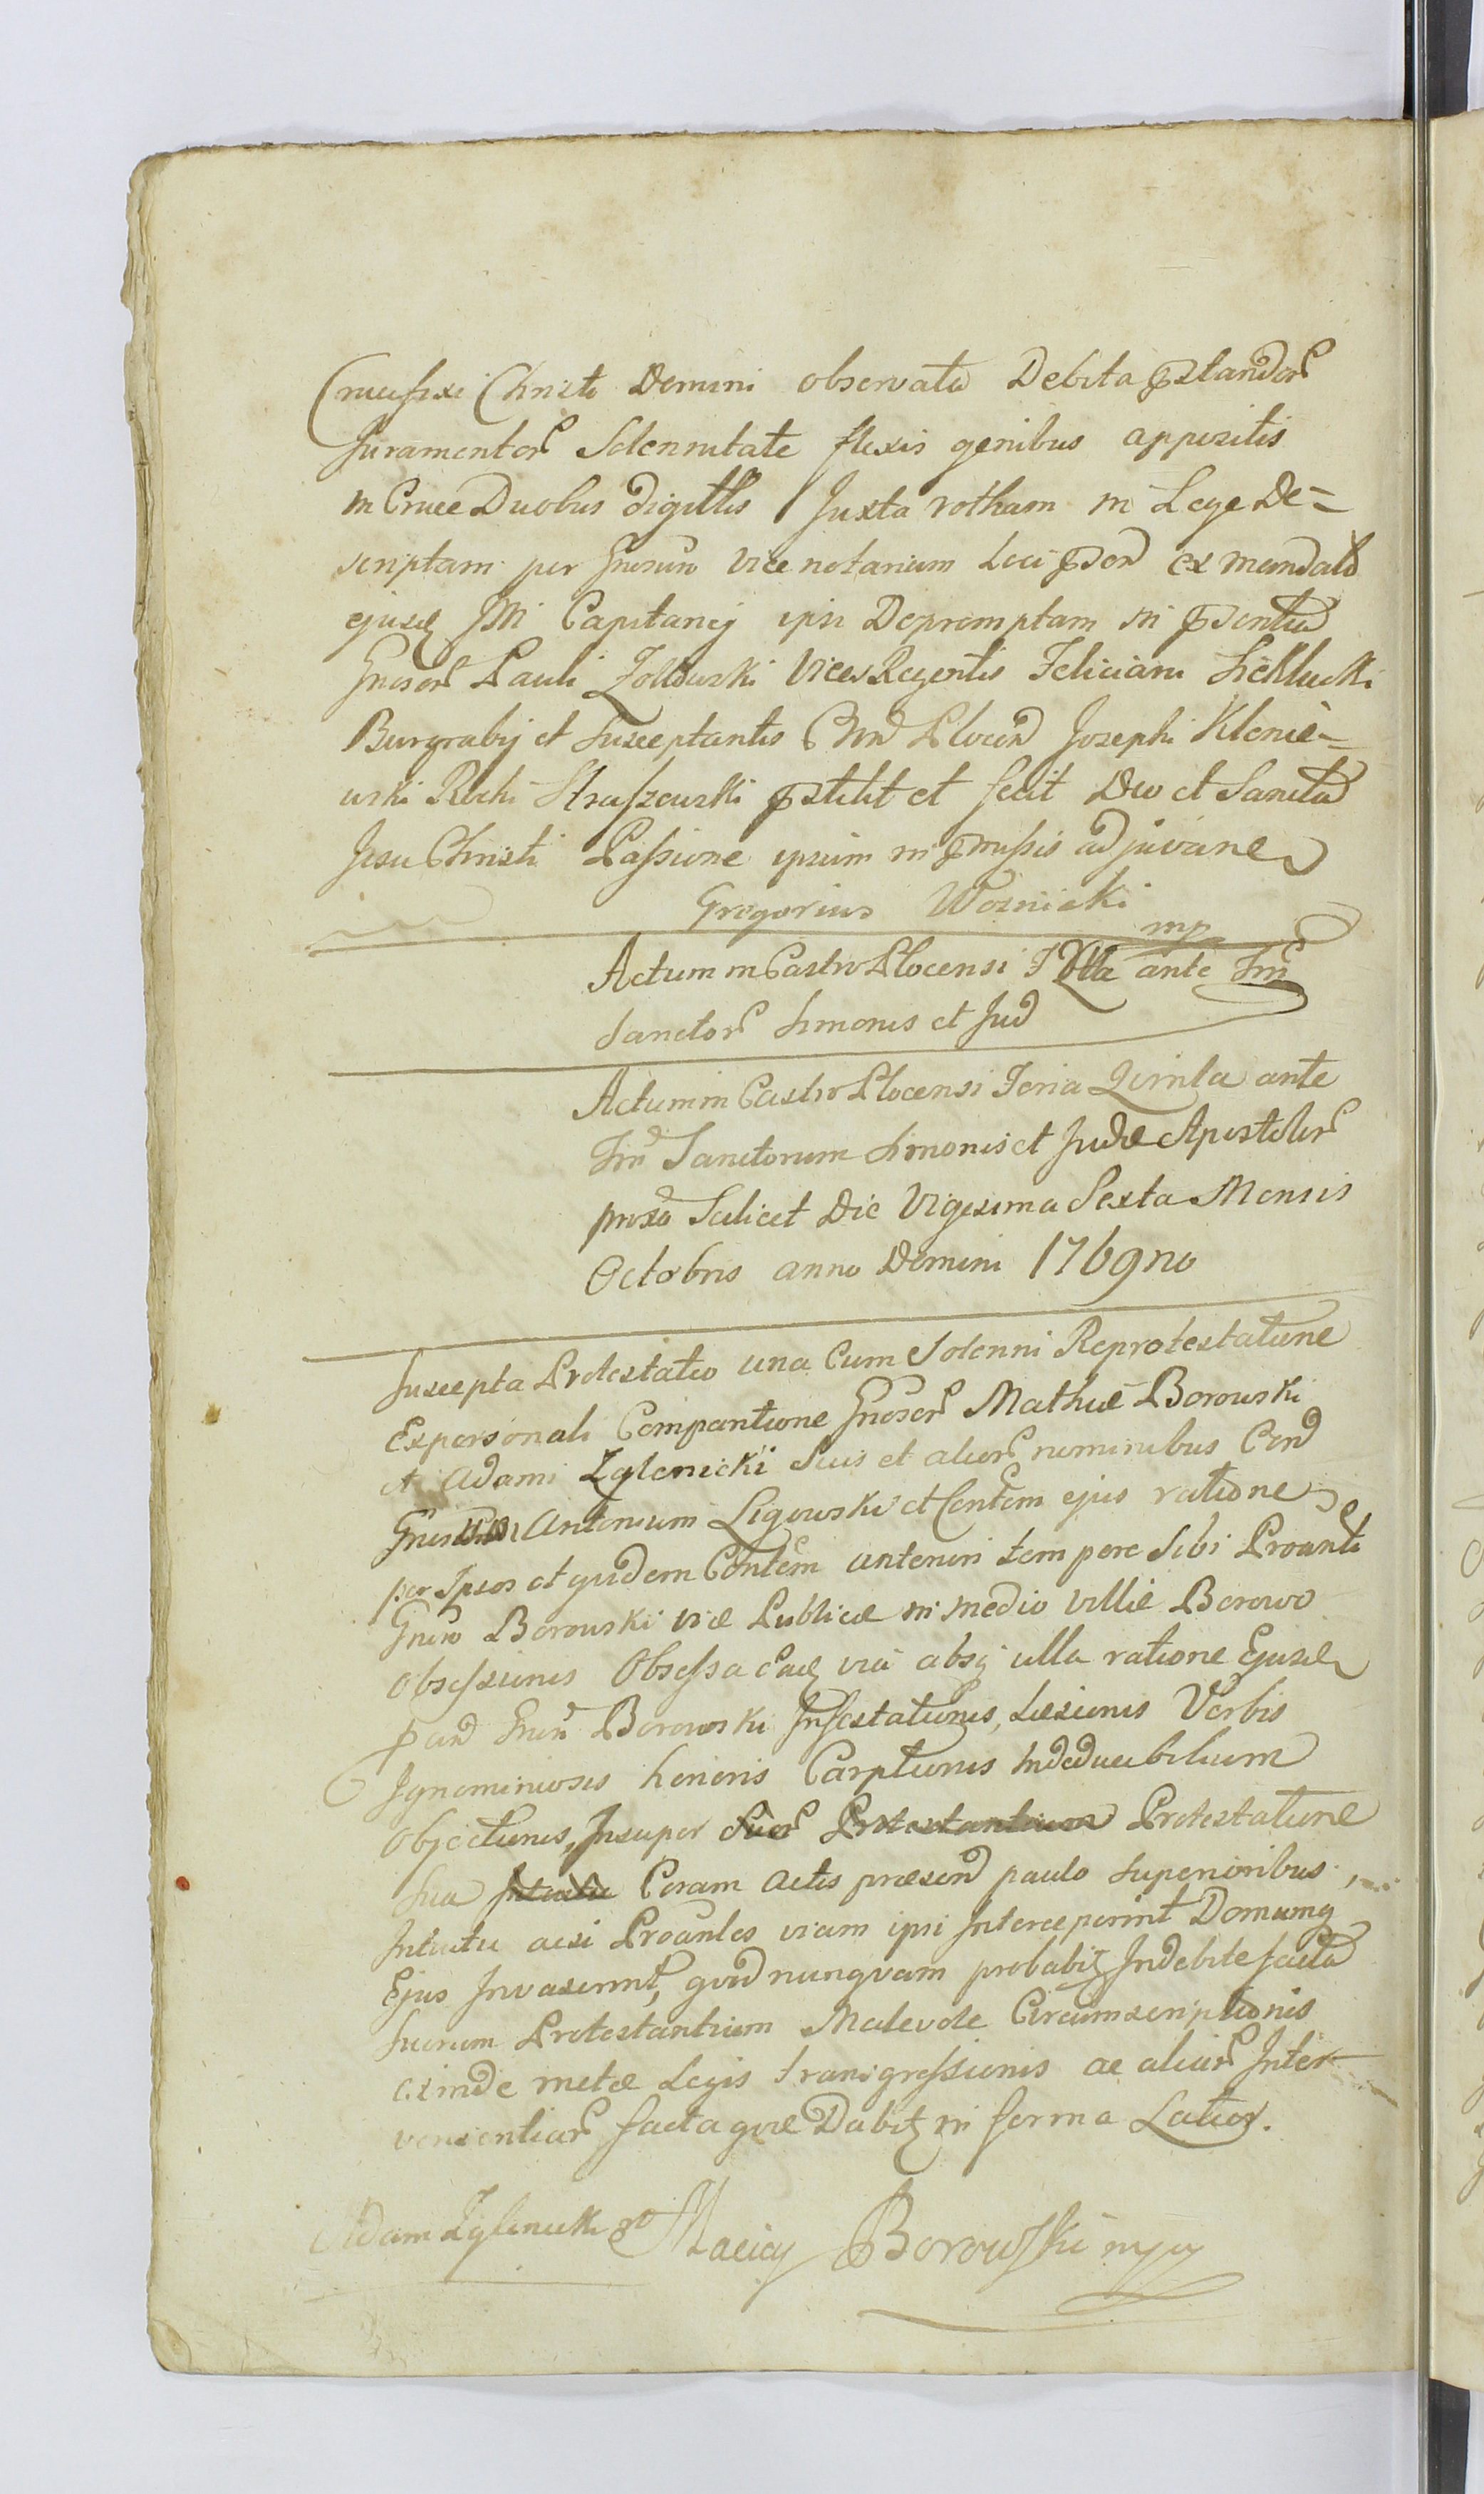 Crucifixi Christi Domini observata Debita pstandor
Juramentor Solennitate flexis genibus appositis
in Cruce Duobus digitis Juxta rotham in Lege De=
scriptam per Gnosum Vice notarium Loci pden ex mandato
ejusd Capitanej ipsi Depromptam in psentia
Gnosor Pauli Zołtowski Vices Regentis Feliciani Siekłucki
Burgrabij et Susceptantis Plocen Josephi Klenie=
wski Rochi Straszewski pstitit et fecit Deo et Sancta
Jesu Christi Passione ipsum in pmissis adjuvane
Gregorius Woznicki
mp
Actum in Castro Plocensi F Vta ante Fm
Sanctor Simonis et Jud
Actum in Castro Plocensi Feria Quinta ante
Fm Sanctorum Simonis et Judæ Apostolor
proxa Scilicet Die Vigesima Sexta Mensis
Octobris anno Domini 1769no
Suscepta Protestatio una Cum Solenni Reprotestatione
Ex personali Compantione Gnosor Mathiæ Borowski
et Adami Zglenicki Suis et alior nominibus Con
Antonium Ligowski et Contem ejus ratione
per Ipsos et quidem Contem anteriori tempore Sibi Proanti
Gnoso Borowski viæ Publicæ in medio villæ Borowo
obsessionis Obsessa eaq via absq ulla ratione Ejusd
Borowski Infestationis, Læsionis Verbis
Ignominiosis honoris Carptionis Indeducibilium
Objectionis, Insuper Suor Protestantium Protestatione
Sua Intuitu Coram Actis præsen paulo Superioribus,
Intuitu acsi Proantes viam ipsi Interceperint Domumq
Ejus Invaserint, quod nunquam probabit Indebite facta
Suorum Protestantium Malevole Circumscriptionis
exinde metæ Legis transgressionis ac alior Inter
venientiar facta quæ Dabit in forma Latior.
Adam Zglenicki Maciey Borowski mpp